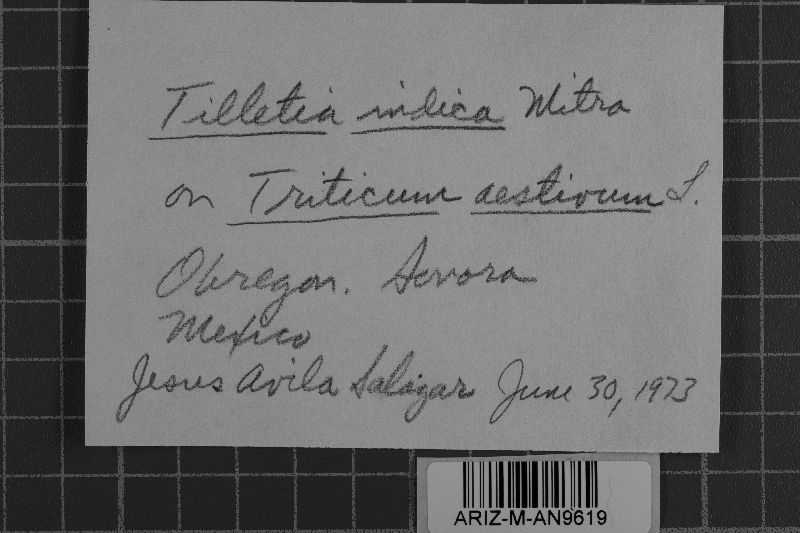 Tilletia indica Mitra
on Triticum aestivum L.
Obregon. Sonora
Mexico
Jesus Avila Salazar June 30, 1973
ARIZ-M-AN9619